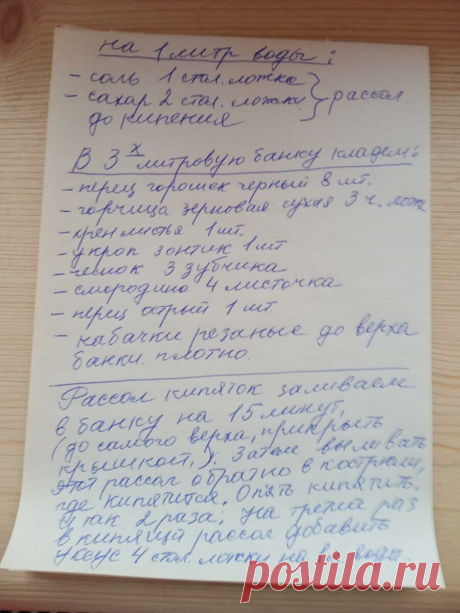 на 1 литр воды:
- соль 1 стол. ложка
- сахар 2 стол. ложки } рассол.
до кипения
В 3х литровую банку кладем:
- перец горошек черный 8 шт.
- горчица зерновая сухая 3 ч. лож
- хрен листья 1 шт.
- укроп зонтик 1 шт
- чеснок 3 зубчика
- смородина 4 листочка
- перец острый 1 шт.
- кабачки резаные до верха
банки. плотно.
Рассол кипяток заливаем
в банку на 15 минут,
(до самого верха, прикрыть
крышкой,). Затем выливать
этот рассол обратно в кастрюлю,
где кипятится. Опять кипятить.
И так 2 раза; на третий раз
в кипящий рассол добавить
уксус 4 стол. ложки на воды.
postila.ru